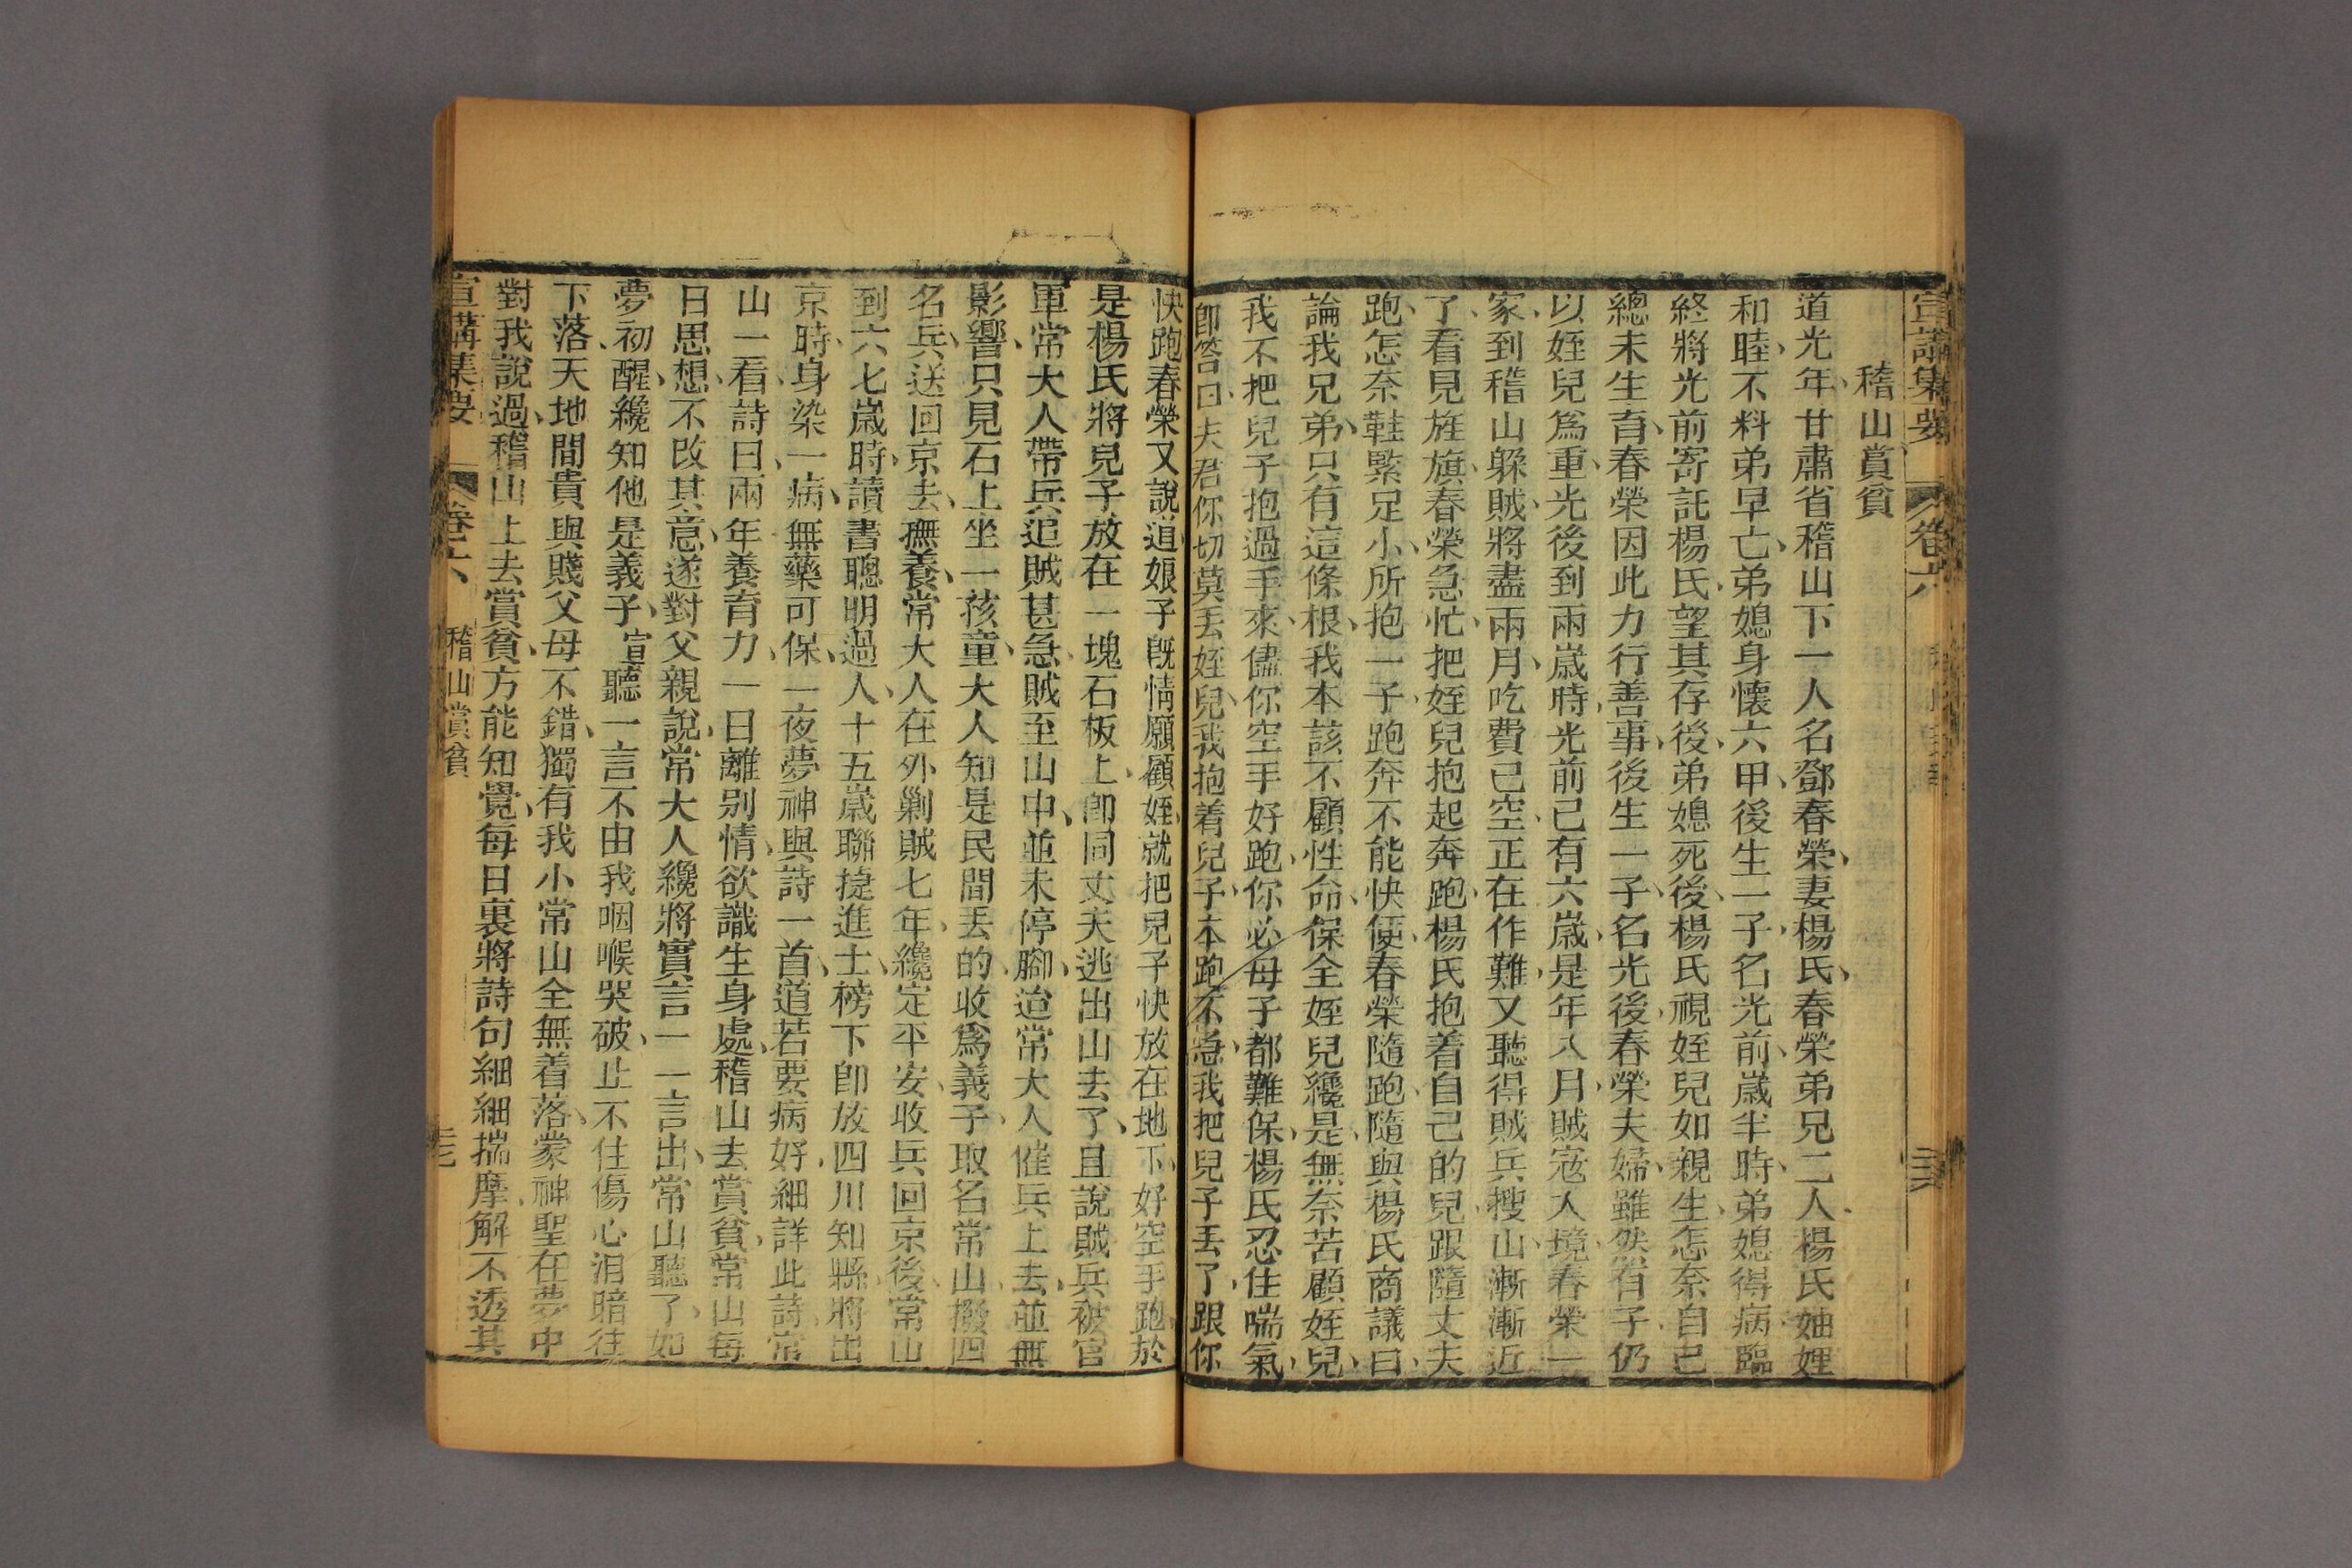 宣講集要 卷六
稽山賞貧
道光年甘肅省稽山下一人名鄧春榮妻楊氏春榮弟兄二人楊氏妯娌
和睦不料弟早亡弟媳身懷六甲後生一子名光前歲半時弟媳得病臨
終將光前寄託楊氏望其存後弟媳死後楊氏視姪兒如親生怎奈自己
總未生育春榮因此力行善事後生一子名光後春榮夫婦雖然有子仍
以姪兒爲重光後到兩歲時光前已有六歲是年八月賊寇入境春榮一
家到稽山躲賊將盡兩月吃費已空正在作難又聽得賊兵搜山漸漸近
了看見旌旗春榮急忙把姪兒抱起奔跑楊氏抱着自己的兒跟隨丈夫
跑怎奈鞋緊足小所抱一子跑奔不能快便春榮隨跑隨與楊氏商議曰
論我兄弟只有這條根我本該不顧性命保全姪兒纔是無奈苦顧姪兒
我不把兒子抱過手來儘你空手好跑你必母子都難保楊氏忍住喘氣
卽答曰夫君你切莫丟姪兒我抱着兒子本跑不急我把兒子丟了跟你
快跑春榮又說道娘子旣情願顧姪就把兒子快放在地下好空手跑於
是楊氏將兒子放在一塊石板上卽同丈夫逃出山去了且說賊兵被官
軍常大人帶兵追賊甚急賊至山中並未停腳迨常大人催兵上去並無
影響只見石上坐一孩童大人知是民間丟的收爲義子取名常山撥四
名兵送回京去撫養常大人在外剿賊七年纔定平安收兵回京後常山
到六七歲時讀書聰明過人十五歲聯捷進士榜下卽放四川知縣將出
京時身染一病無藥可保一夜夢神與詩一首道若要病好細詳此詩常
山一看詩曰兩年養育力一日離別情欲識生身處稽山去賞貧常山每
日思想不改其意遂對父親說常大人纔將實言一一言出常山聽了如
夢初醒纔知他是義子宣聽一言不由我咽喉哭破止不住傷心泪暗往
下落天地間貴與賤父母不錯獨有我小常山全無着落蒙神聖在夢中
對我說過稽山上去賞貧方能知覺每日裏將詩句細細揣摩解不透其
宣講集要 卷六 稽山賞貧 三七